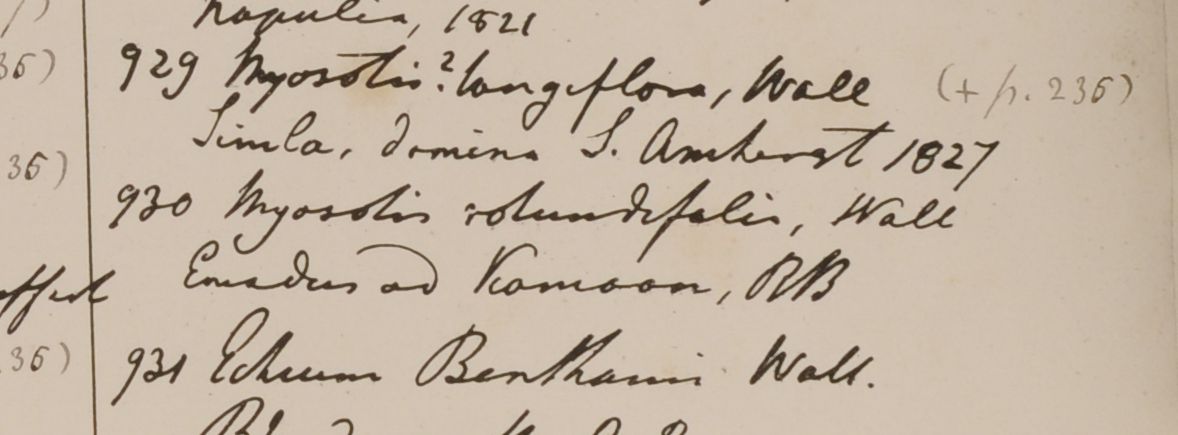 Napalia, 1821
929 Myosotis? longiflora, Wall (+ p. 236)
Simla, domina S. Amherst 1827
930 Myosotis rotundifolia, Wall
Emodus ad Kamaon, RB
931 Echium Benthami Wall.
36)
36)
36)